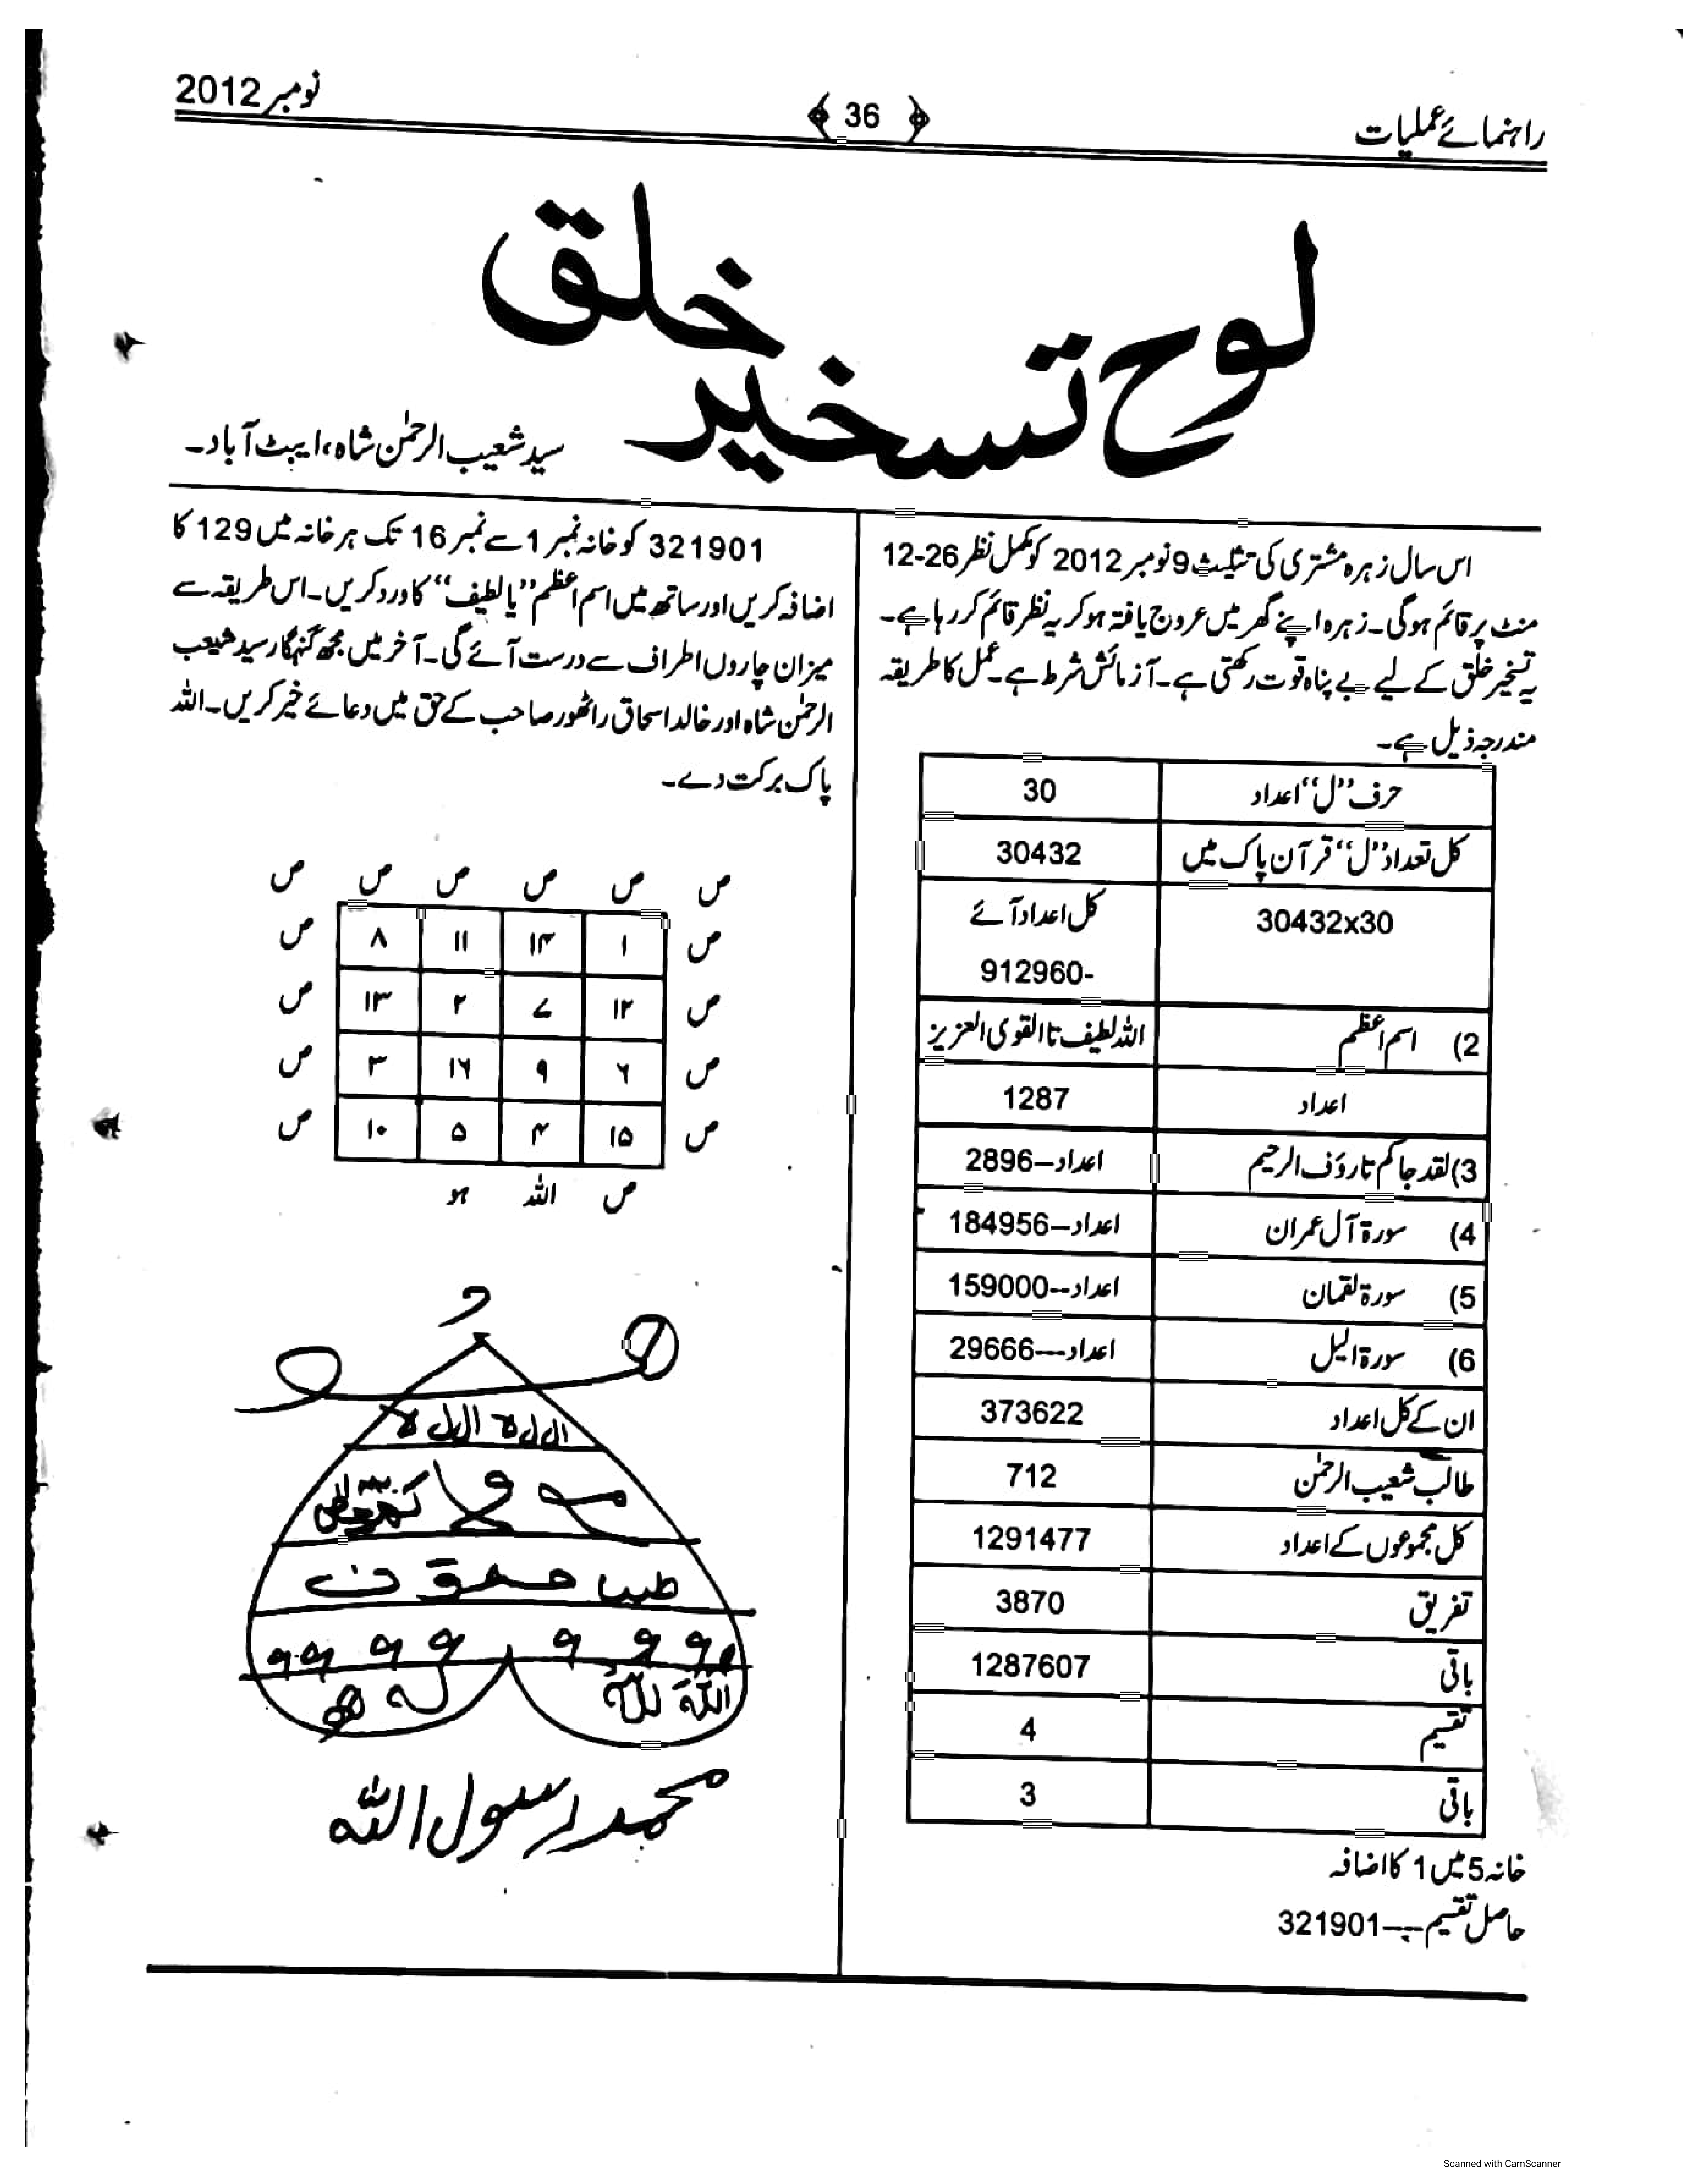 راہنمائے عملیات
36
نومبر 2012
لوح تسخیر خلق
سید شعیب الرحمٰن شاہ، ایبٹ آباد۔
اس سال زہرہ مشتری کی تثلیث 9 نومبر 2012 کو مکمل نظر 26-12
منٹ پر قائم ہوگی۔ زہرہ اپنے گھر میں عروج یافتہ ہو کر یہ نظر قائم کر رہا ہے۔
یہ تسخیر خلق کے لیے بے پناہ قوت رکھتی ہے۔ آزمائش شرط ہے۔ عمل کا طریقہ
مندرجہ ذیل ہے۔
حرف ”ل“ اعداد 30
کل تعداد ”ل“ قرآن پاک میں 30432
30432x30 کل اعداد آئے
912960-
2) اسم اعظم اللہ لطیف تا القوی العزیز
اعداد 1287
3) لقد جاکم تا رؤف الرحیم اعداد—2896
4) سورۃ آل عمران اعداد—184956
5) سورۃ لقمان اعداد--159000
6) سورۃ الیل اعداد---29666
ان کے کل اعداد 373622
طالب شعیب الرحمٰن 712
کل مجموعوں کے اعداد 1291477
تفریق 3870
باقی 1287607
تقسیم 4
باقی 3
خانہ 5 میں 1 کا اضافہ
حاصل تقسیم ہے---321901
321901 کو خانہ نمبر 1 سے نمبر 16 تک ہر خانہ میں 129 کا
اضافہ کریں اور ساتھ میں اسم اعظم ”یا لطیف“ کا ورد کریں۔ اس طریقہ سے
میزان چاروں اطراف سے درست آئے گی۔ آخر میں مجھ گنہگار سید شعیب
الرحمٰن شاہ اور خالد اسحاق راٹھور صاحب کے حق میں دعائے خیر کریں۔ اللہ
پاک برکت دے۔
ص ص ص ص ص ص
ص ۱ ۱۴ ۱۱ ۸ ص
ص ۱۲ ۷ ۲ ۱۳ ص
ص ۶ ۹ ۱۶ ۳ ص
ص ۱۵ ۴ ۵ ۱۰ ص
ص اللہ ہو
محمد رسول اللہ
Scanned with CamScanner